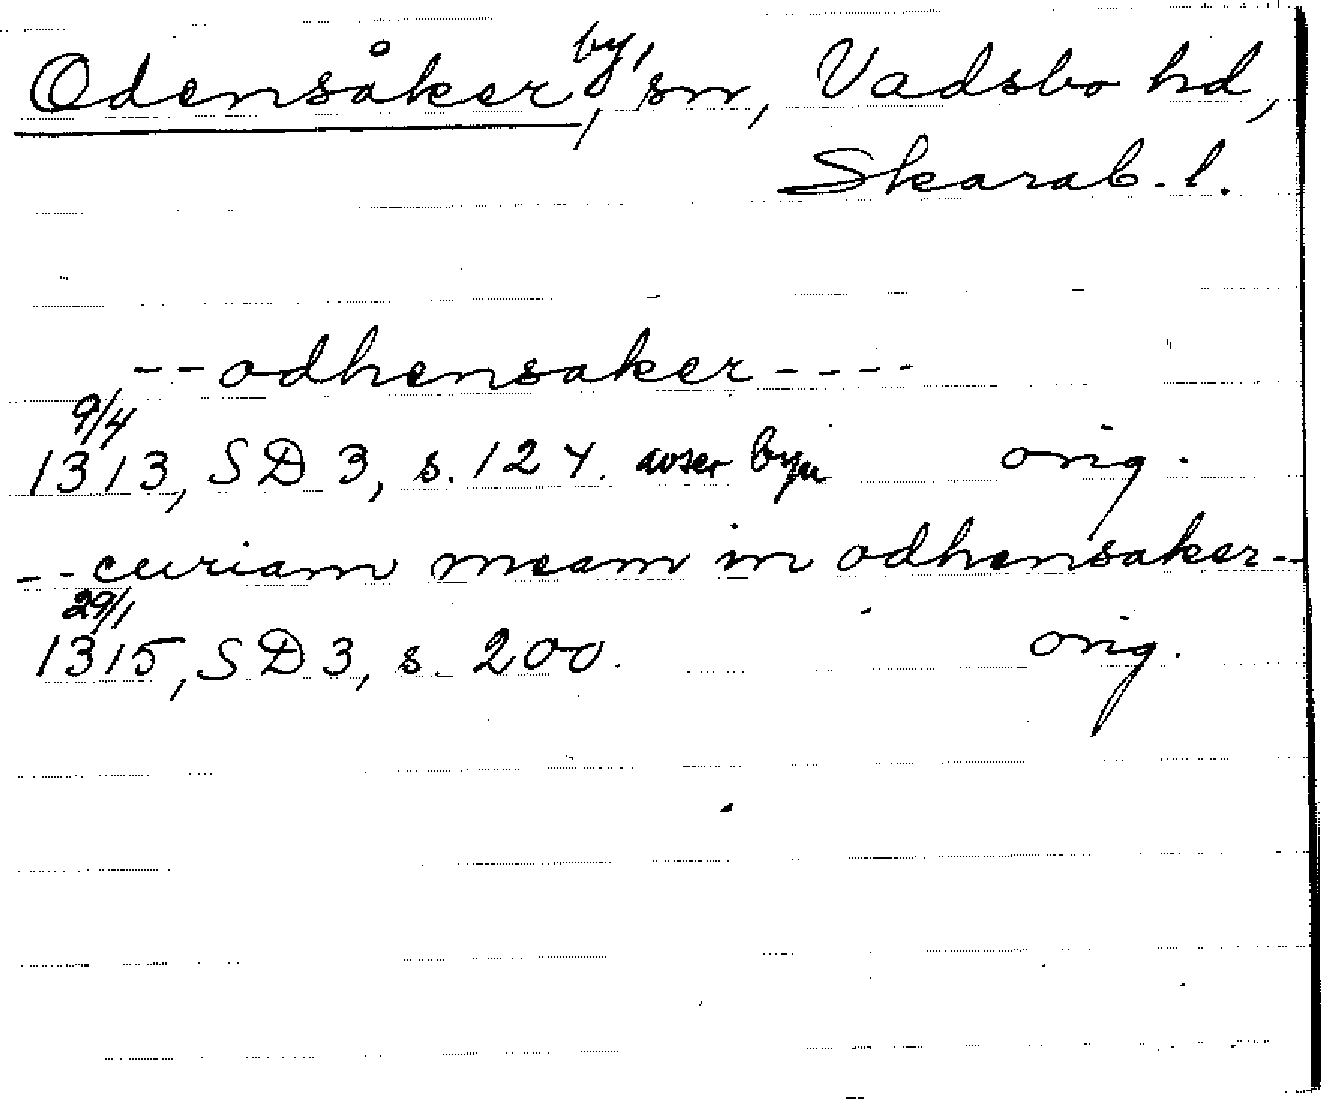 Odensåker, by, sn, Vadsbo hd,
Skarab. l.
-- odhensaker ----
9/4
1313, SD 3, s. 127. avser byn orig.
-- curiam meam in odhensaker --
29/1
1315, SD 3, s. 200. orig.